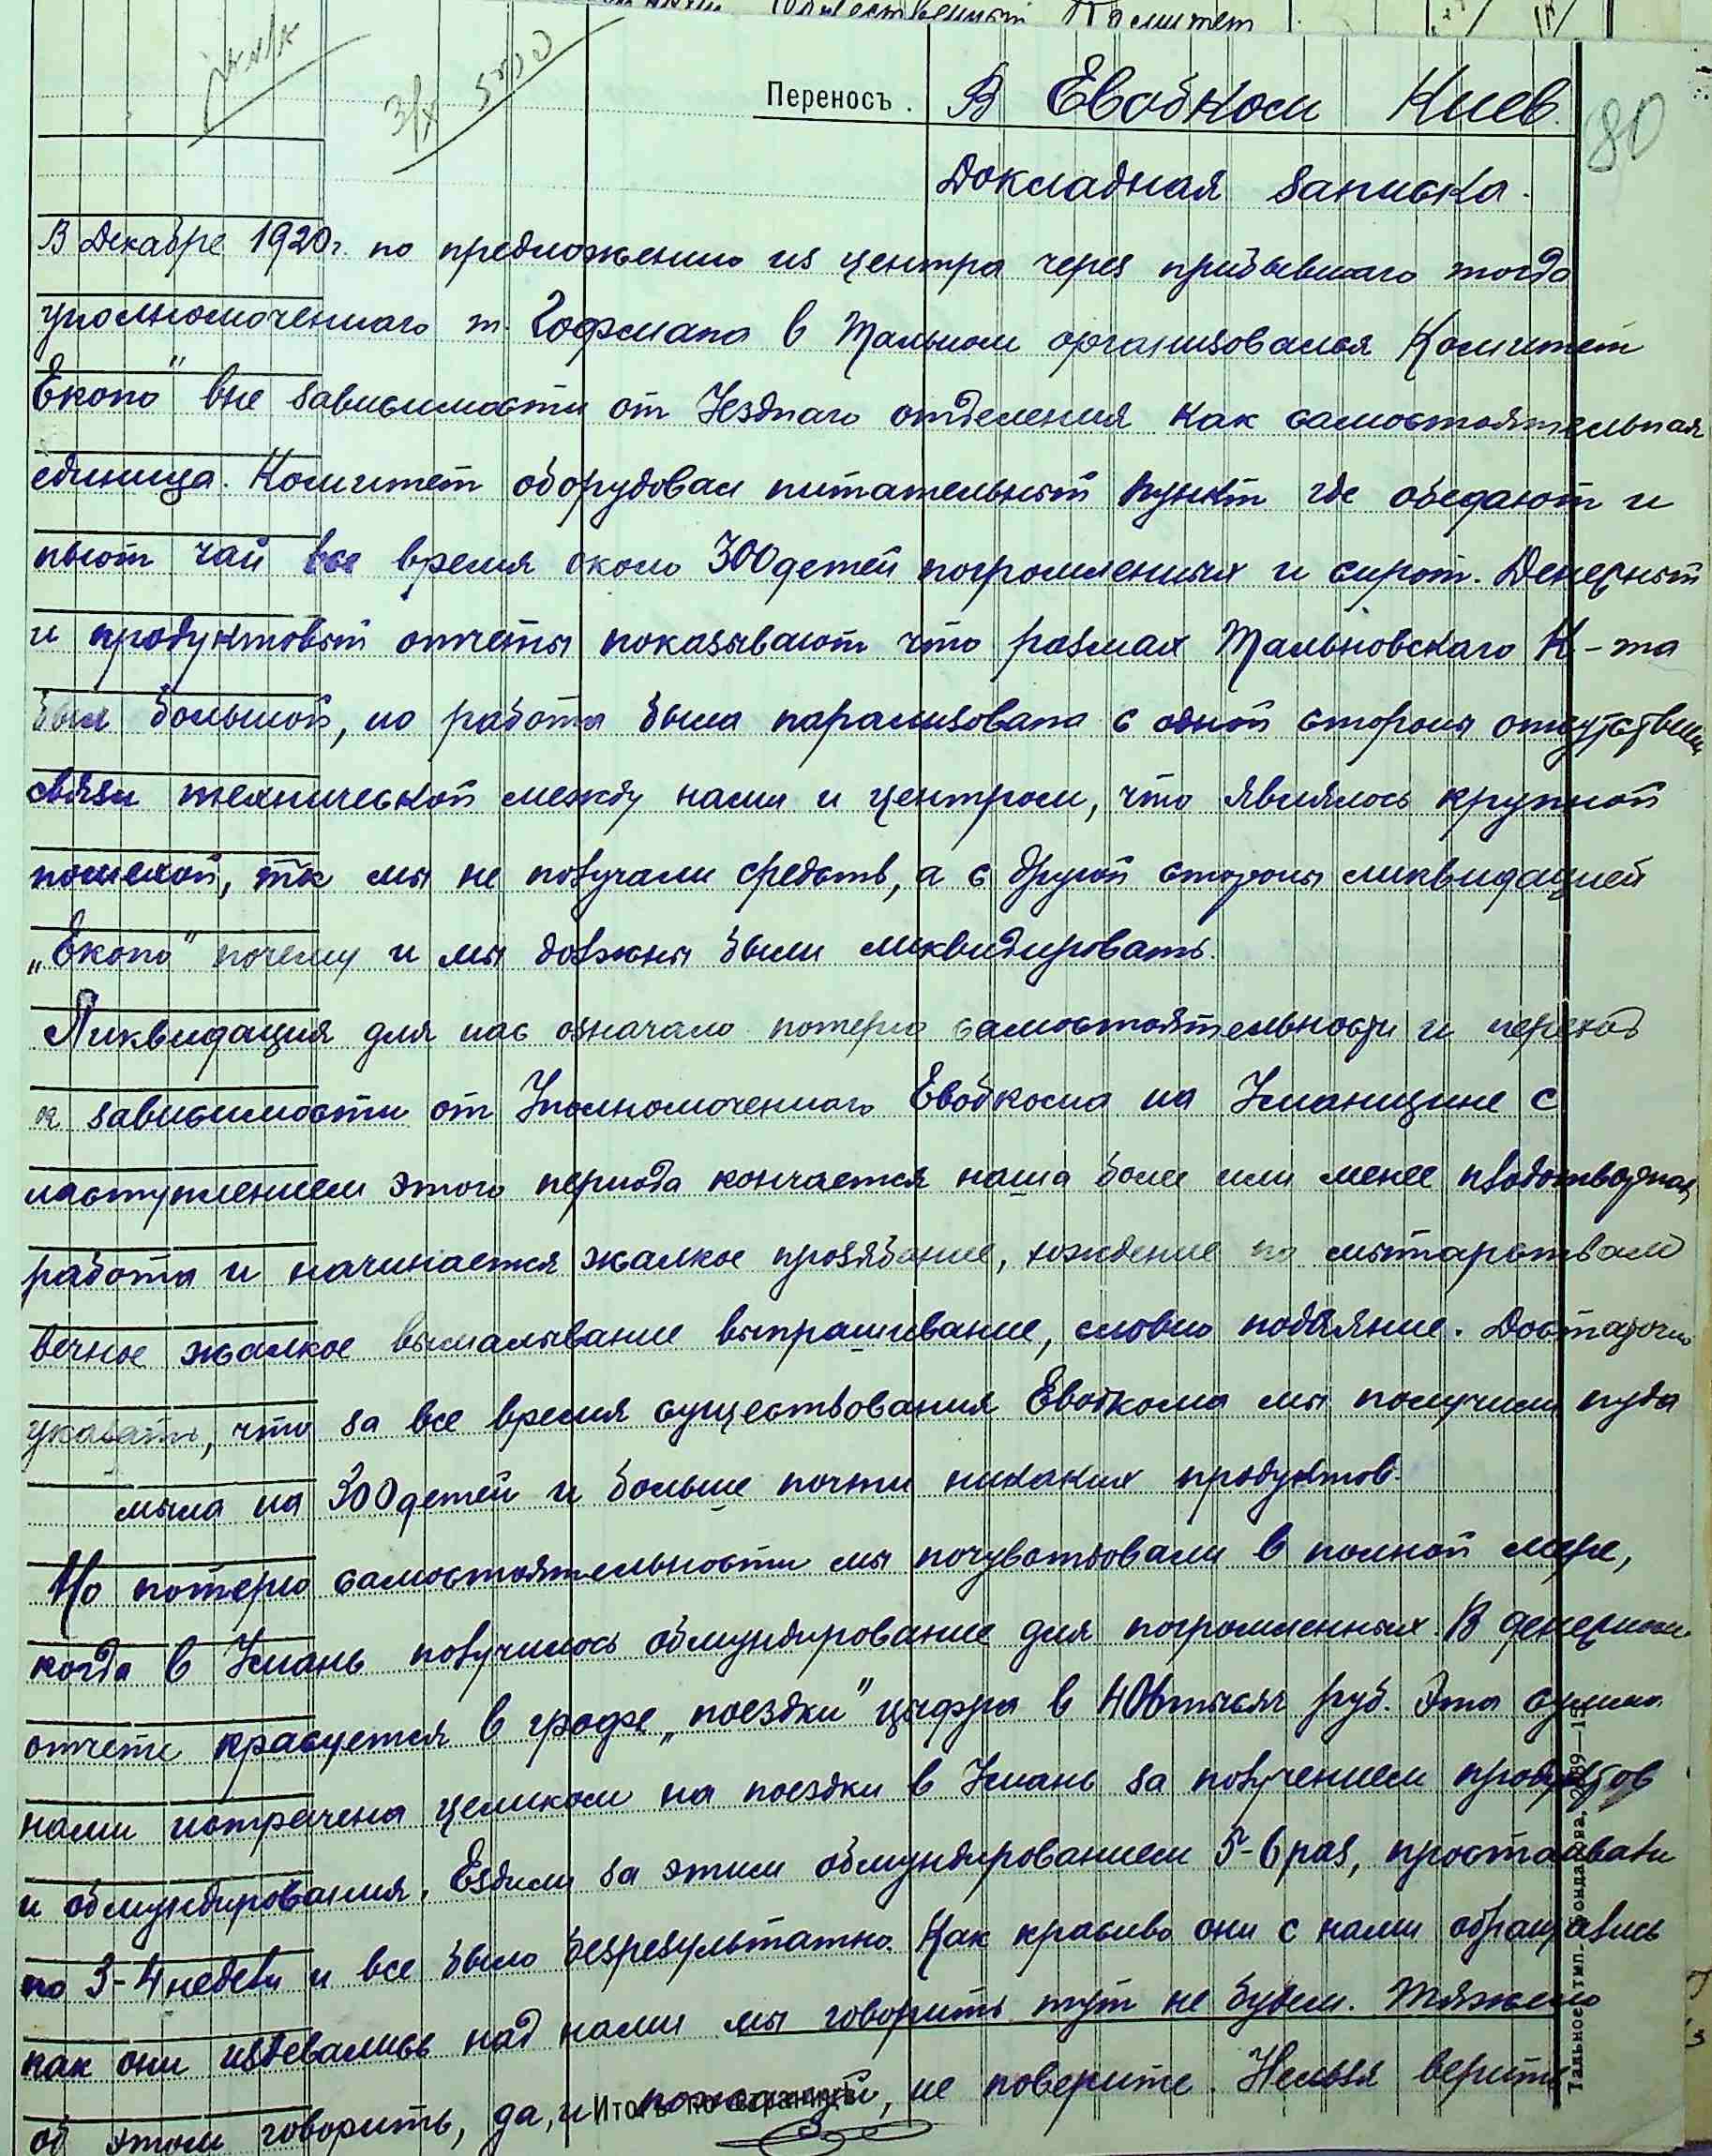 Общественный Комитет
3/X 5000
Переносъ. В Евобком Киев.
80
Докладная записка.
В Декабре 1920г. по предложению из центра через прибывшаго тогда
уполномоченнаго т. Гофмана в Тальном организовался Комитет
Екопо" вне зависимости от Уезднаго отделения как самостоятельная
единица. Комитет оборудовал питательный пункт где обедают и
пьют чай все время около 300 детей погромленных и сирот. Денежный
и продуктовый отчеты показывают что размах Тальновскаго К-та
был большой, но работа была парализована с одной стороны отсутствием
связи технической между нами и центром, что являлось крупной
помехой, т.к. мы не получали средств, а с другой стороны ликвидацией
„Екопо" почему и мы должны были ликвидировать.
Ликвидация для нас означало потерю самостоятельности и переход
в зависимости от Уполномоченнаго Евобкома на Уманщине С
наступлением этого периода кончается наша более или менее плодотворная
работа и начинается жалкое прозябание, хождение по мытарствам
вечное жалкое вымаливание выпрашивание, словно подаяние. Достаточно
указать, что за все время существования Евобкома мы получили пуда
мыла на 300 детей и больше почти никаких продуктов.
Но потерю самостоятельности мы почувствовали в полной мере,
когда в Умань получилось обмундирование для погромленных. В денежном
отчете красуется в графе „поездки" цыфра в 406 тысяч руб. Эта сумма
нами истрачена целиком на поездки в Умань за получением продуктов
и обмундирования. Ездили за этим обмундированием 5-6 раз, простаивали
по 3-4 недели и все было безрезультатно. Как красиво они с нами обращались
как они издевались над нами мы говорить тут не будем. Тяжело
об этом говорить, да, и пожалуй, не поверите. Нельзя верить
Итогъ по страницѣ
Тальное, тип. Бондарова, 2389—15г.